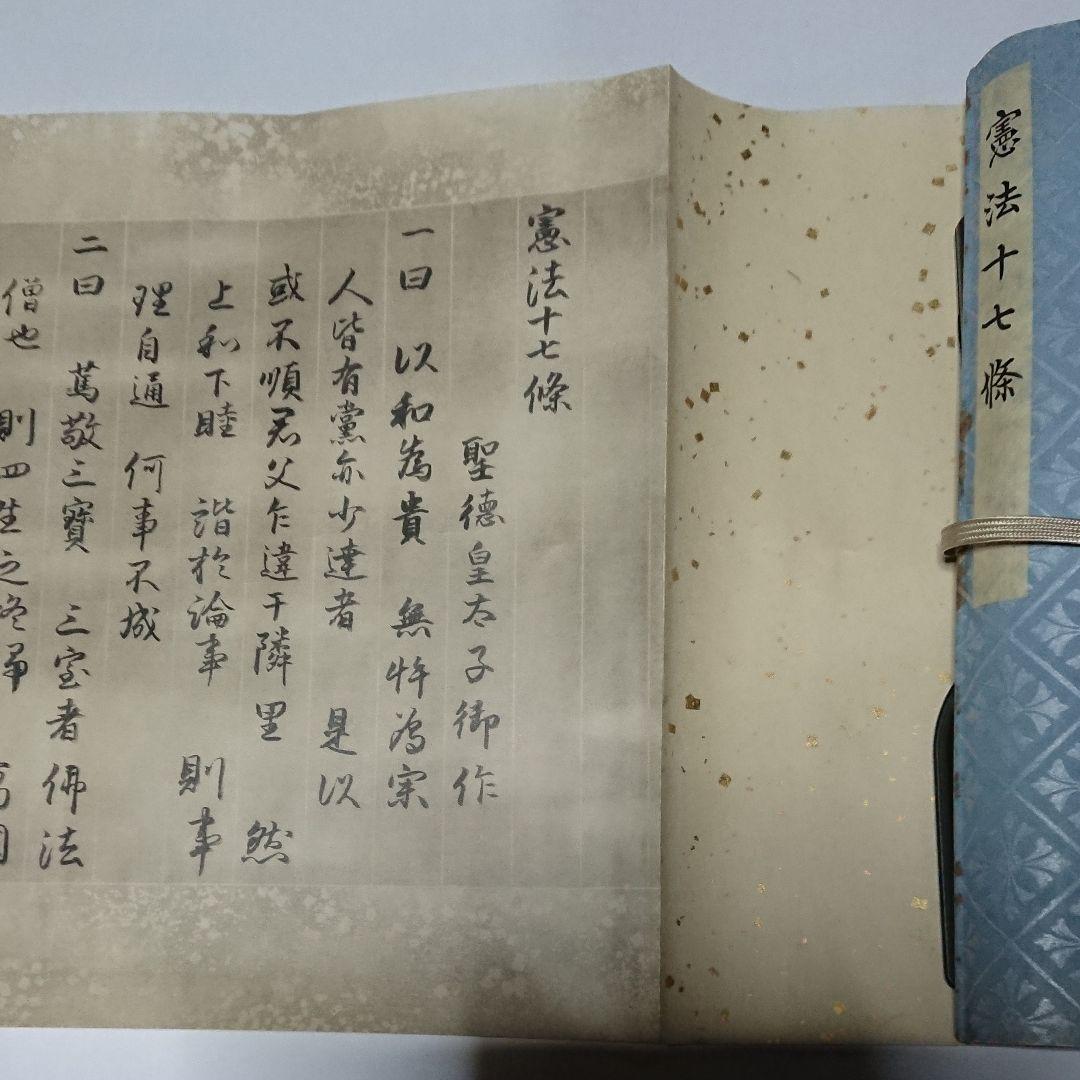 憲法十七條
憲法十七條
聖德皇太子御作
一曰 以和為貴 無忤為宗
人皆有黨亦少達者 是以
或不順君父乍違于隣里 然
上和下睦 諧於論事 則事
理自通 何事不成
二曰 篤敬三寶 三宝者佛法
僧也 則四生之終歸 萬国